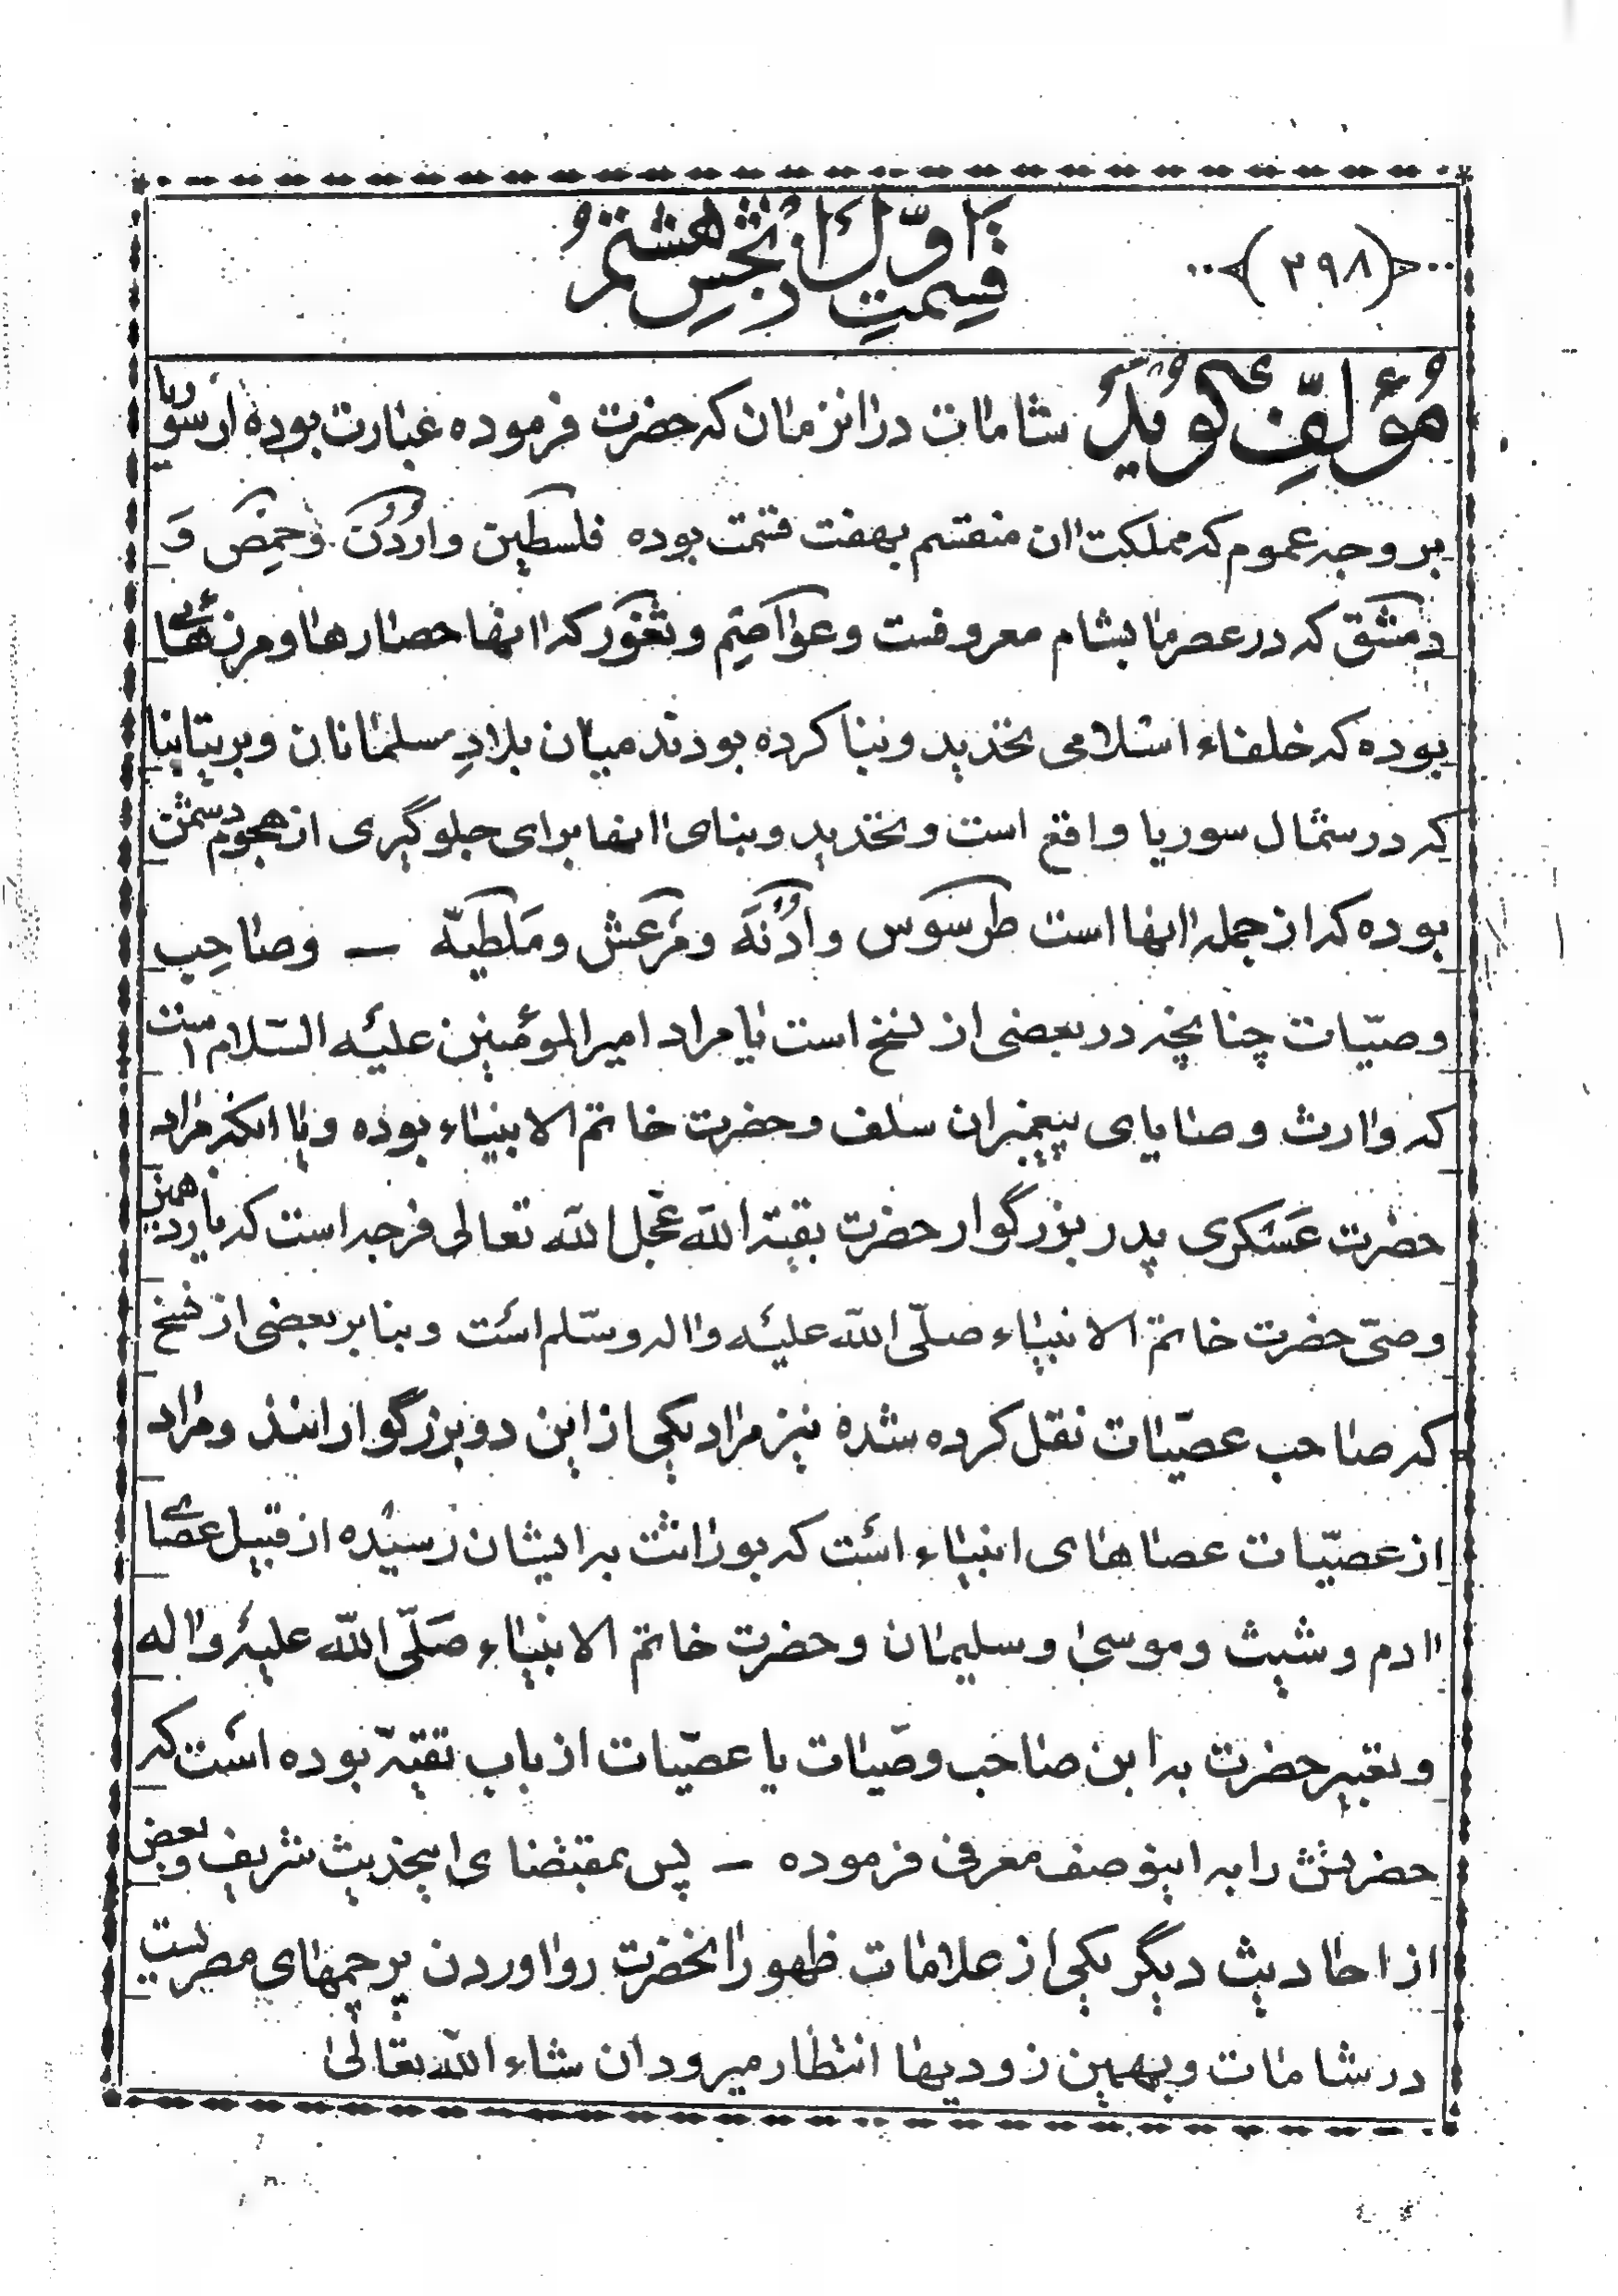 (٣٩٨)
قسمت اوّل از بخش هشتم
مؤلّف گوید شامات در انزمان که حضرت فرموده عبارت بوده از سوریا
بر وجه عموم که مملکت ان منقسم بهفت قسمت بوده فلسطین و اردُن و حِمِص وَ
دمشق که در عصر ما بشام معروفست و عواصِم و ثغور که انها حصارها و مرزهائی
بوده که خلفاء اسلامی تحدید و بنا کرده بودند میان بلادِ مسلمانان و بریتانیا
که در شمال سوریا واقع است و تحدید و بنای انها برای جلوگیری از هجوم دشمن
بوده که از جمله انها است طرسوس و ادنَه و مَرعش و مَلطیّه ـ و صاحِب
وصیّات چنانچه در بعضی از نسخ است یا مراد امیر المؤمنین علیه السّلام است
که وارث وصایای پیغمبران سلف و حضرت خاتم الانبیاء بوده و یا انکه مراد
حضرت عَسکری پدر بزرگوار حضرت بقیّة الله عجّل الله تعالی فرجه است که یازدهمین
وصّی حضرت خاتم الانبیاء صلّی الله علیه واله وسّلم است و بنا بر بعضی از نسخ
که صاحب عصیّات نقل کرده شده نیز مراد یکی از این دو بزرگوارانند و مراد
از عصیّات عصاهای انبیاء است که بوراثت به ایشان رسیده از قبیل عصای
ادم و شیث و موسی و سلیمان و حضرت خاتم الانبیاء صَلّی الله علیه واله
و تعبیر حضرت به ابن صاحب وصّیات یا عصیّات از باب تقیّه بوده است که
حضرتش را به اینوصف معرفی فرموده ـ پس بمقتضای اینحدیث شریف و بعض
از احادیث دیگر یکی از علامات ظهور انحضرت رو اوردن پرچمهای مصریست
در شامات و بهمین زودیها انتظار میرود ان شاء الله تعالی